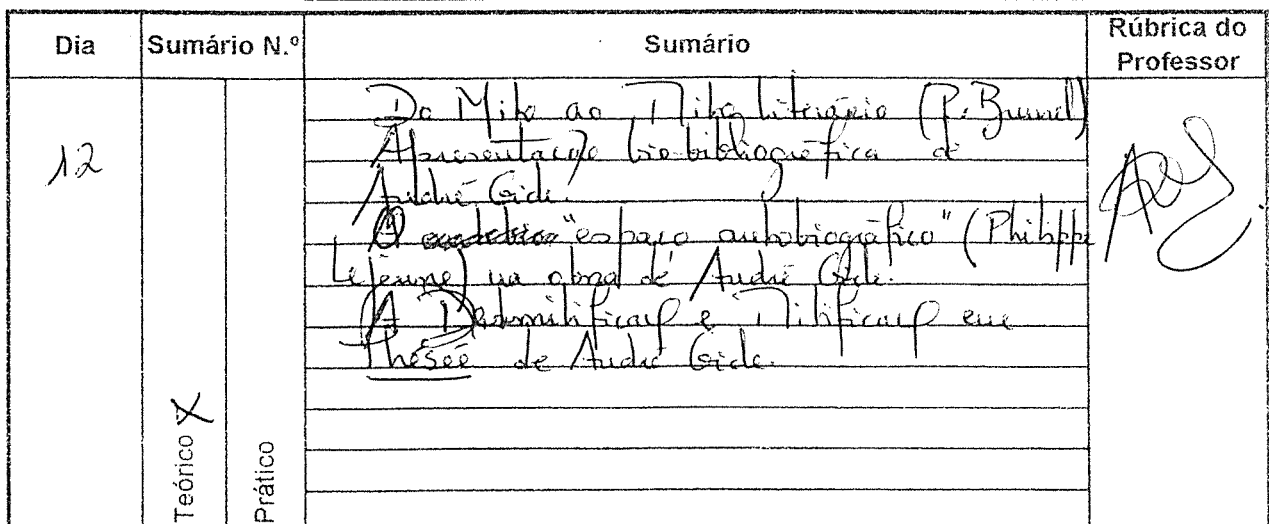 Dia Sumário N.º Sumário Rúbrica do Professor
12
Do Mito ao Mito Literário (P. Brunel)
Apresentação bio-bibliográfica de
André Gide.
O "espaço autobiográfico" (Philippe
Lejeune) na obra de André Gide.
A Desmitificação e Mitificação em
Thésée de André Gide.
Teórico X
Prático